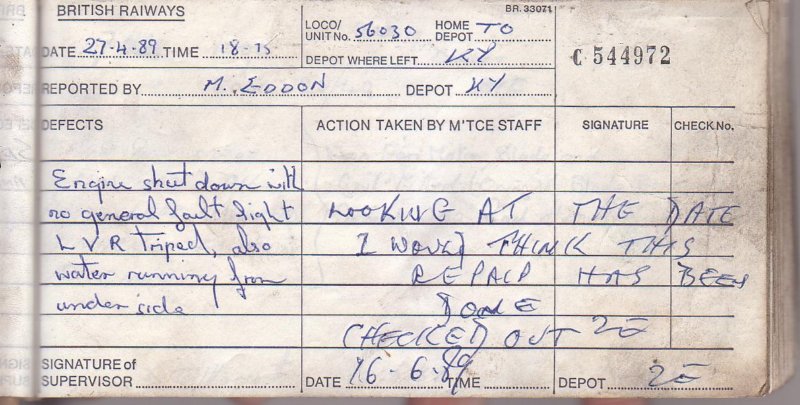 BRITISH RAIWAYS
BR. 33071
LOCO/ UNIT No. 56030 HOME DEPOT TO
C 544972
DATE 27-4-89 TIME 18-15
DEPOT WHERE LEFT KY
REPORTED BY M. EDDON DEPOT KY
DEFECTS
ACTION TAKEN BY M'TCE STAFF
SIGNATURE
CHECK No.
Engine shut down with
no general fault light
L V R Triped, also
water running from
under side
LOOKING AT THE DATE
I WOULD THINK THIS
REPAIR HAS BEEN
DONE
CHECKED OUT ZE
SIGNATURE of
SUPERVISOR
DATE 16-6-89 TIME DEPOT ZE